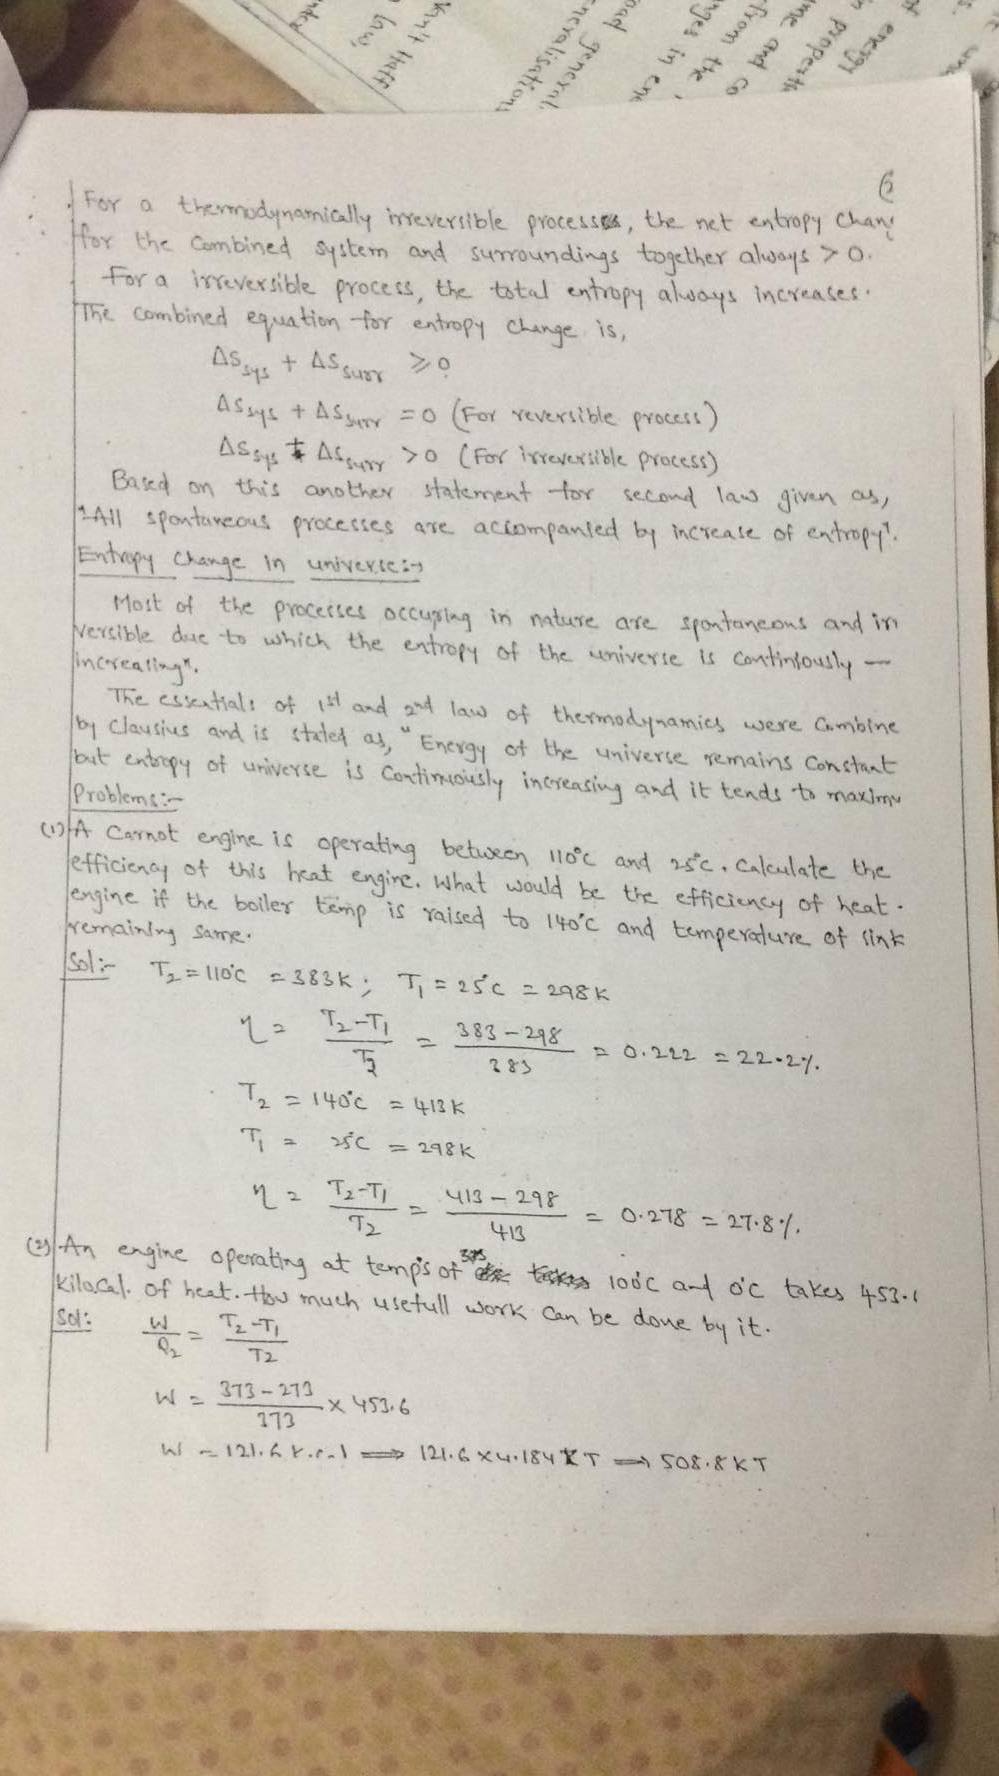 For a thermodynamically irreversible process, the net entropy chan
for the combined system and surroundings together always > 0.
For a irreversible process, the total entropy always increases.
The combined equation for entropy change is,
ΔSsys + ΔSsurr ≥ 0
ΔSsys + ΔSsurr = 0 (For reversible process)
ΔSsys + ΔSsurr > 0 (For irreversible process)
Based on this another statement for second law given as,
"All spontaneous processes are accompanied by increase of entropy".
Entropy change in universe:-
Most of the processes occuring in nature are spontaneous and irr
versible due to which the entropy of the universe is continiously —
increasing".
The essentials of 1st and 2nd law of thermodynamics were combine
by Clausius and is stated as, "Energy of the universe remains constant
but entropy of universe is continuously increasing and it tends to maximu
Problems:-
(1) A Carnot engine is operating between 110°C and 25°C. Calculate the
efficiency of this heat engine. What would be the efficiency of heat.
engine if the boiler temp is raised to 140°C and temperature of sink
remaining same.
Sol:- T2 = 110°C = 383K; T1 = 25°C = 298K
η = T2-T1/T2 = 383-298/383 = 0.222 = 22.2%.
T2 = 140°C = 413K
T1 = 25°C = 298K
η = T2-T1/T2 = 413-298/413 = 0.278 = 27.8%.
(2) An engine operating at temp's of 100°C and 0°C takes 453.6
kilocal. of heat. How much usefull work can be done by it.
Sol: W/Q2 = T2-T1/T2
W = 373-273/373 × 453.6
W = 121.6 k.cal ⟹ 121.6 × 4.184 KJ ⟹ 508.8 KJ